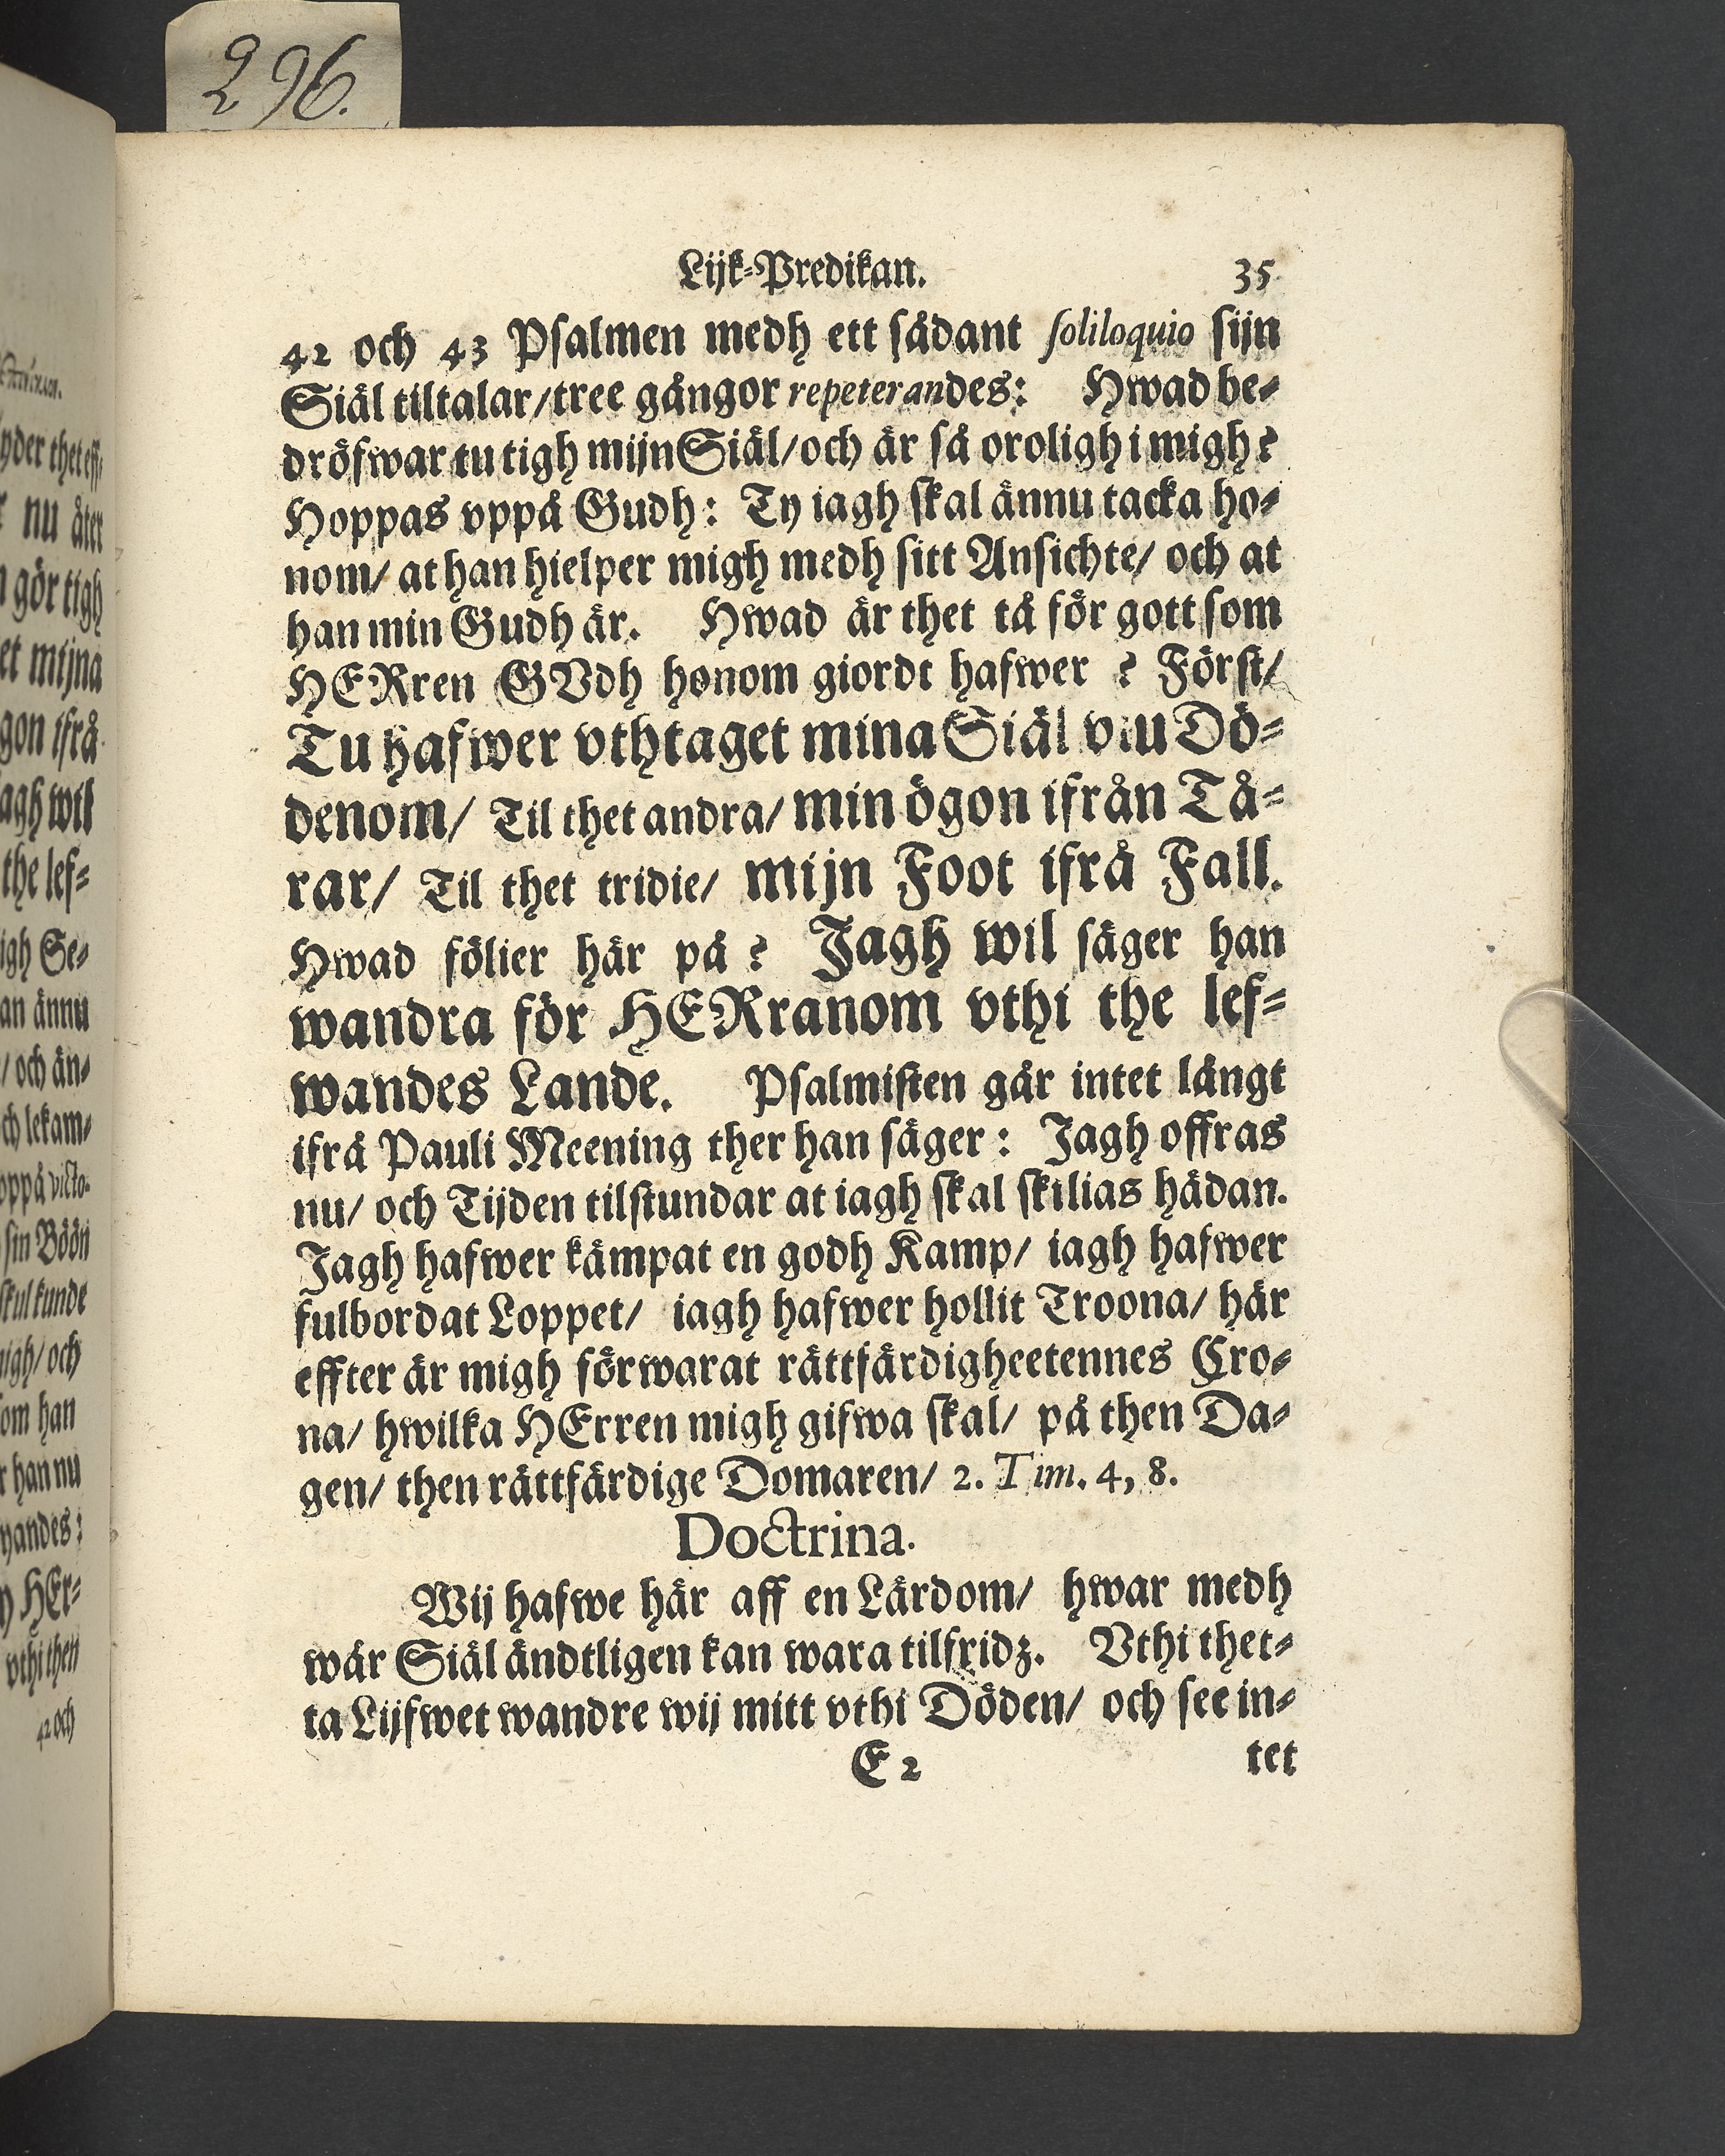 296.
Lijk-Predikan. 35
42 och 43 Psalmen medh ett sådant soliloquio sijn
Siäl tiltalar/tree gångor repeterandes: Hwad be-
dröfwar tu tigh mijn Siäl/och är så oroligh i migh?
Hoppas vppå Gudh: Ty iagh skal ännu tacka ho-
nom/ at han hielper migh medh sitt Ansichte/ och at
han min Gudh är. Hwad är thet tå för gott som
HERren GVdh honom giordt hafwer ? Först/
Tu hafwer vthtaget mina Siäl vtu Dö-
denom/ Til thet andra/ min ögon ifrån Tå-
rar/ Til thet tridie/ mijn Foot ifrå Fall.
Hwad fölier här på ? Jagh wil säger han
wandra för HERranom vthi the lef-
wandes Lande. Psalmisten går intet långt
ifrå Pauli Meening ther han säger : Jagh offras
nu/ och Tijden tilstundar at iagh skal skilias hädan.
Jagh hafwer kämpat en godh Kamp/ iagh hafwer
fulbordat Loppet/ iagh hafwer hollit Troona/ här
effter är migh förwarat rättfärdigheetennes Cro-
na/ hwilka HErren migh gifwa skal/ på then Da-
gen/ then rättfärdige Domaren/ 2. Tim. 4, 8.
Doctrina.
Wij hafwe här aff en Lärdom/ hwar medh
wår Siäl ändtligen kan wara tilfridz. Vthi thet-
ta Lijfwet wandre wij mitt vthi Döden/ och see in-
E 2 tet
yder thet eff-
nu åter
gör tigh
mijna
ifrå
wil
the lef-
Se-
ännu
/ och än-
lekam-
victo-
sin Böön
skul kunde
migh/ och
som han
han nu
HEr-
vthi then
42 och